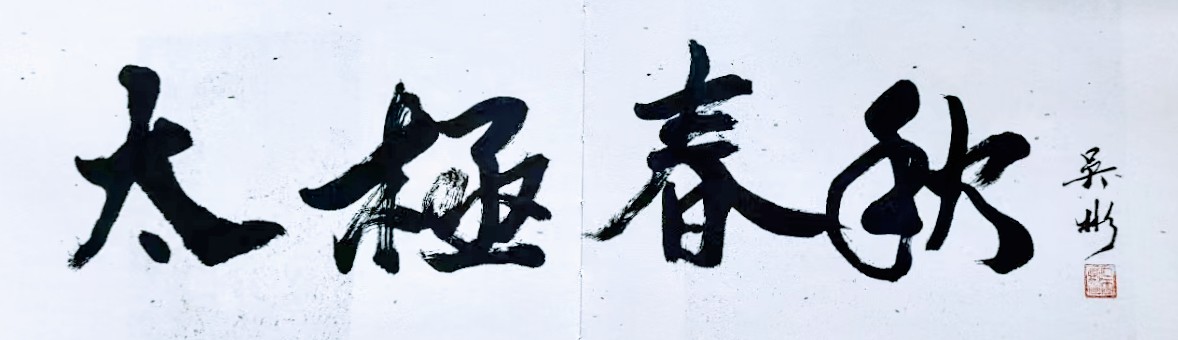 太極春秋
吳彬